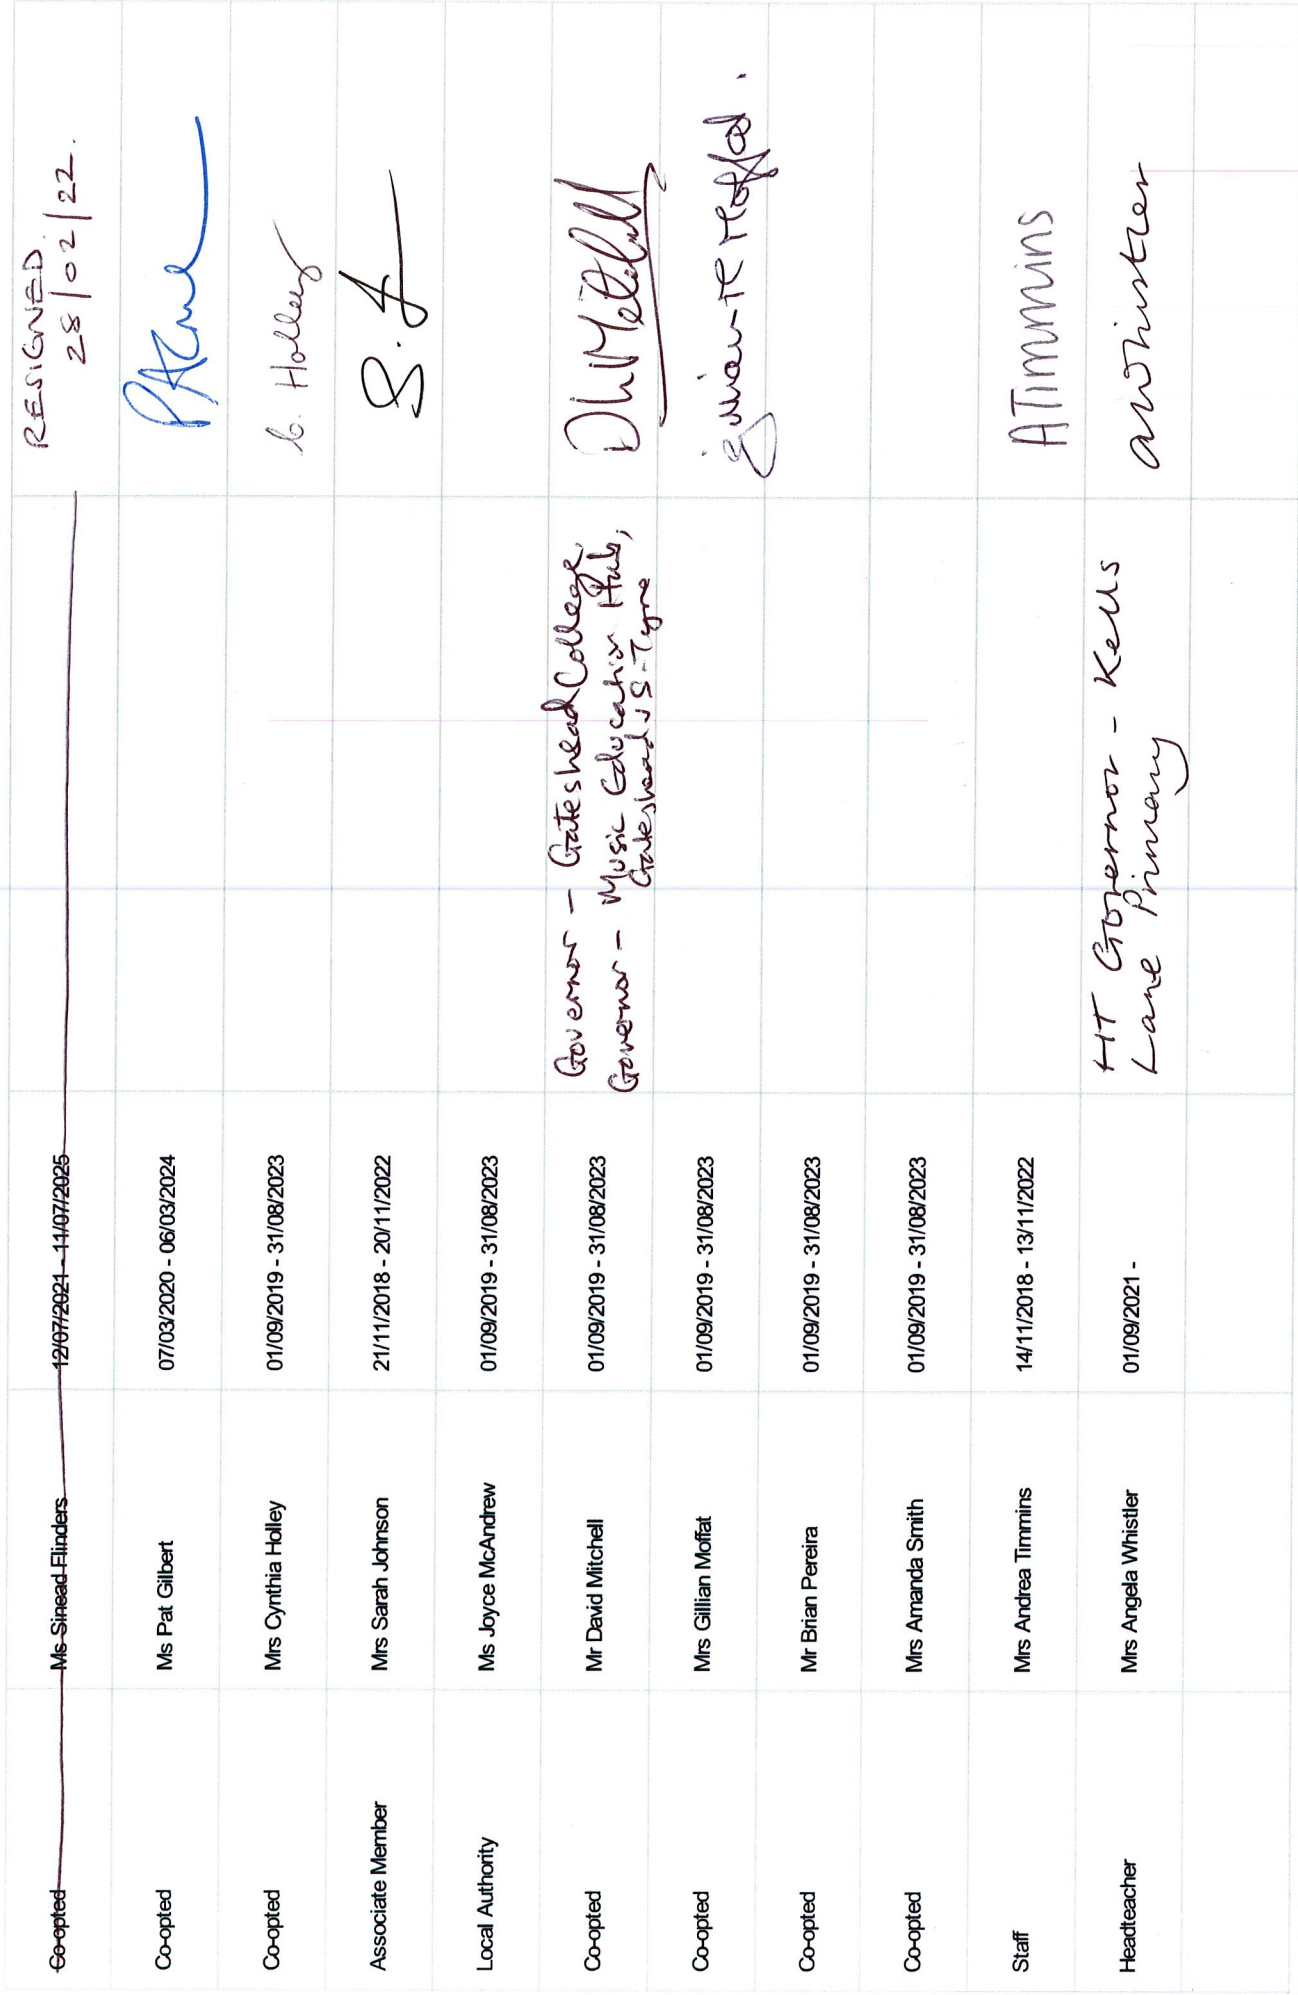 Co-opted Ms Sinead Flinders 12/07/2021 - 11/07/2025 RESIGNED
28/02/22.
Co-opted Ms Pat Gilbert 07/03/2020 - 06/03/2024
Co-opted Mrs Cynthia Holley 01/09/2019 - 31/08/2023 C. Holley
Associate Member Mrs Sarah Johnson 21/11/2018 - 20/11/2022 S. J
Local Authority Ms Joyce McAndrew 01/09/2019 - 31/08/2023
Co-opted Mr David Mitchell 01/09/2019 - 31/08/2023 Governor - Gateshead College,
Governor - Music Education Hub,
Gateshead & S-Tyne
Co-opted Mrs Gillian Moffat 01/09/2019 - 31/08/2023 Moffat.
Co-opted Mr Brian Pereira 01/09/2019 - 31/08/2023
Co-opted Mrs Amanda Smith 01/09/2019 - 31/08/2023
Staff Mrs Andrea Timmins 14/11/2018 - 13/11/2022 ATimmins
Headteacher Mrs Angela Whistler 01/09/2021 - HT Governor - Kells awhistler
Lane Primary